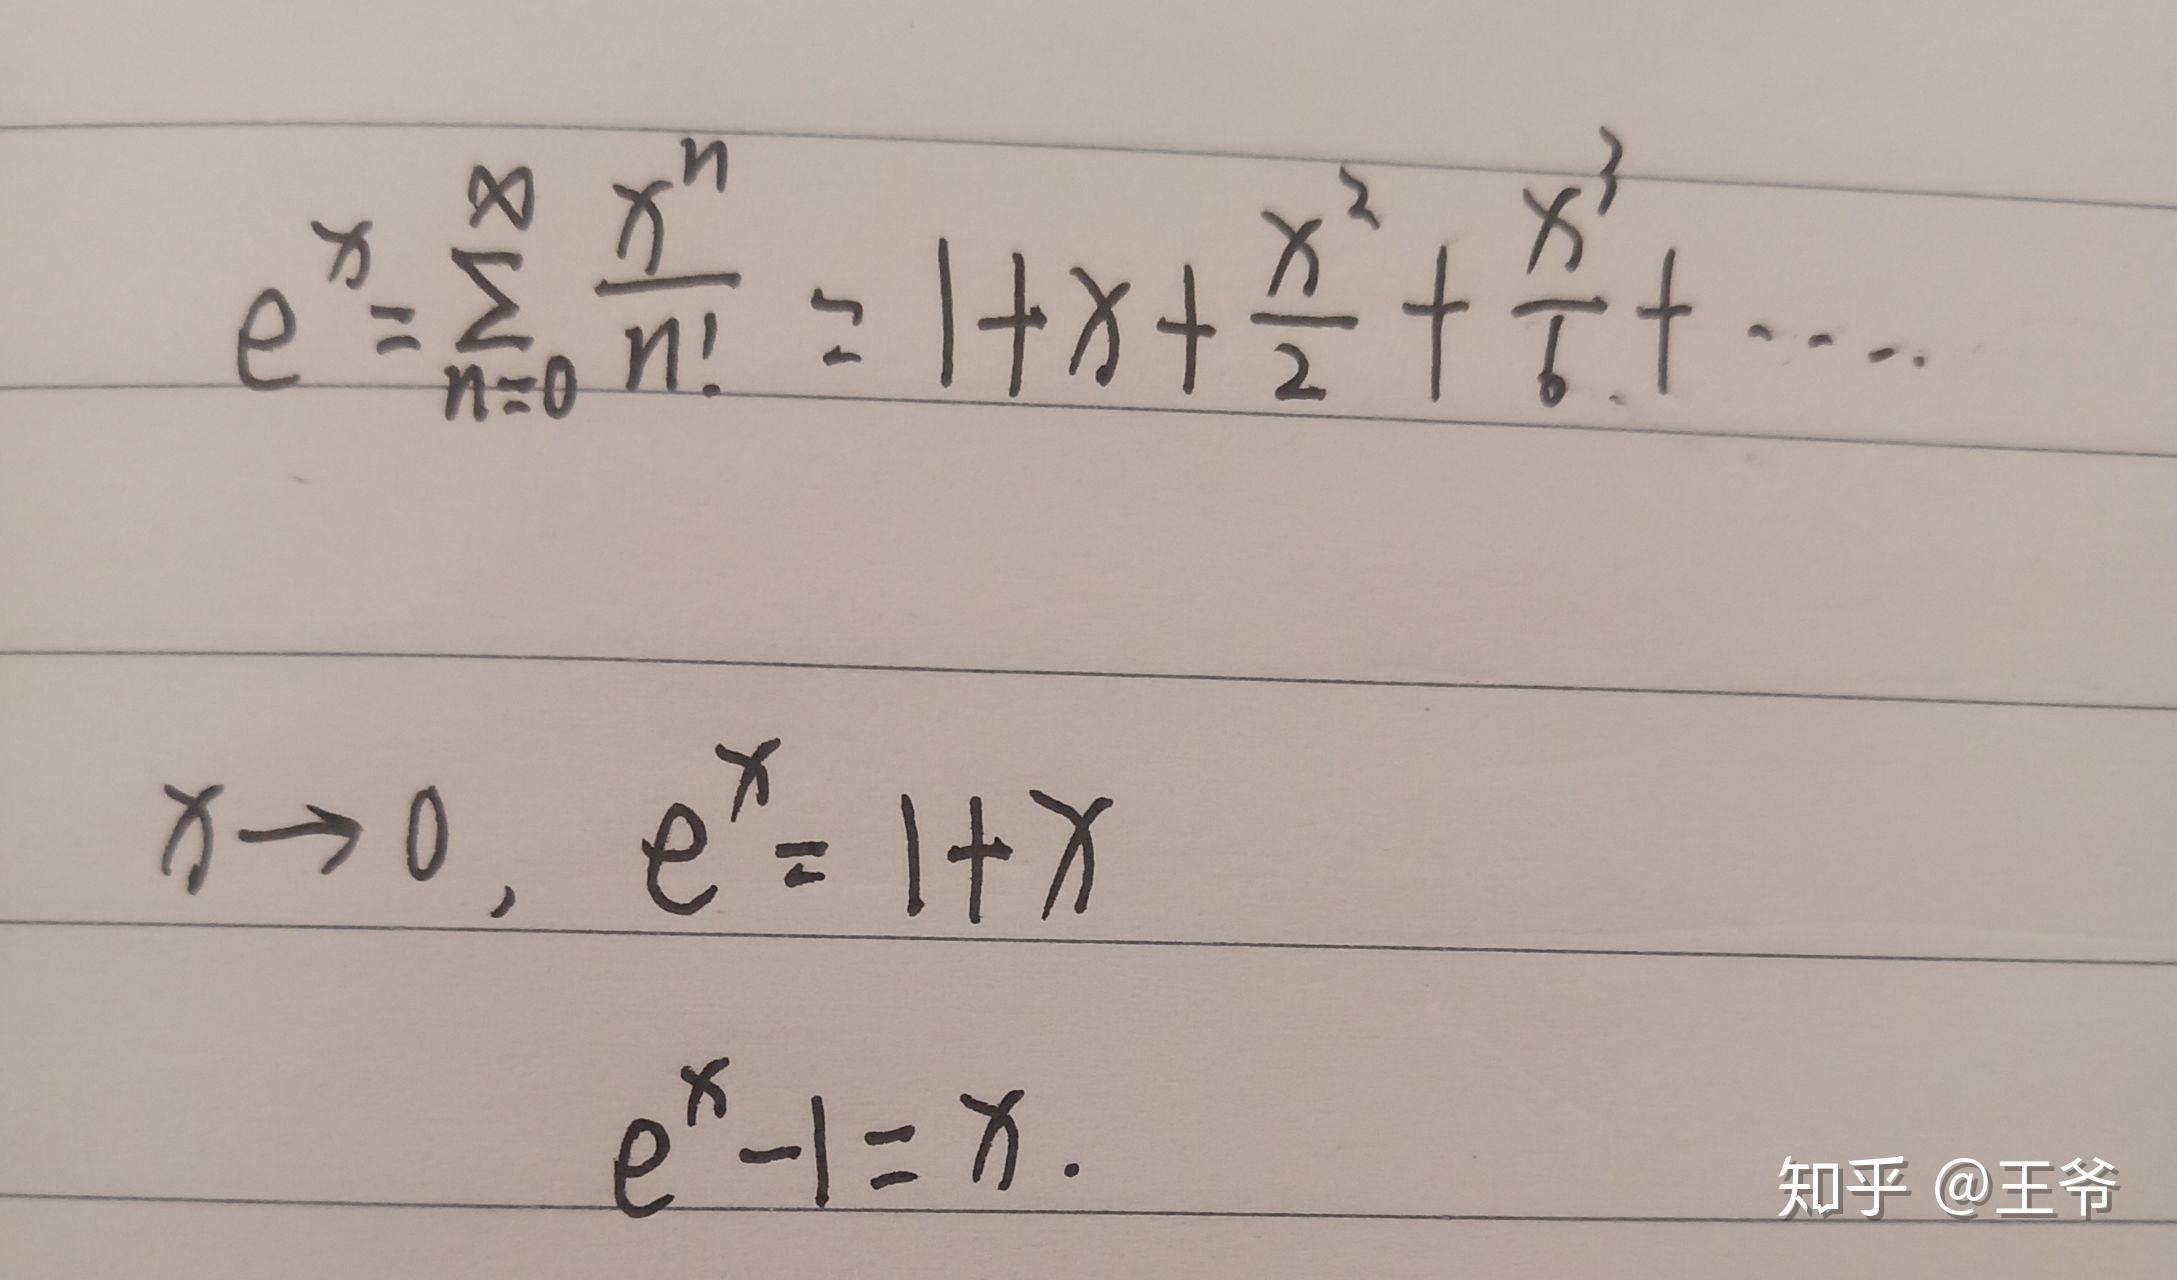 e^x = ∑_{n=0}^{∞} x^n/n! = 1+x+x^2/2+x^3/6+·····
x→0, e^x = 1+x
e^x-1=x.
知乎 @王爷